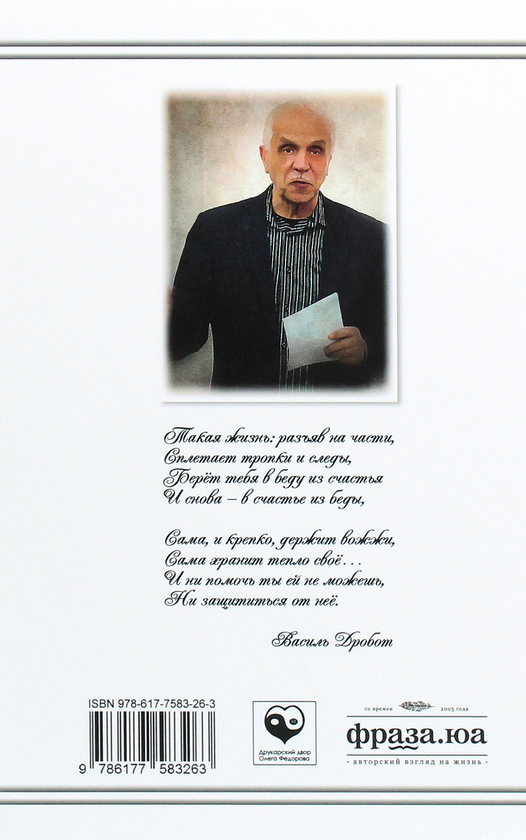 Такая жизнь: разъяв на части,
Сплетает тропки и следы,
Берёт тебя в беду из счастья
И снова – в счастье из беды,
Сама, и крепко, держит вожжи,
Сама хранит тепло своё...
И ни помочь ты ей не можешь,
Ни защититься от неё.
Василь Дробот
ISBN 978-617-7583-26-3
9 786177 583263
Друкарский двор
Олега Федорова
со времен 2005 года
фраза.юа
· авторский взгляд на жизнь ·